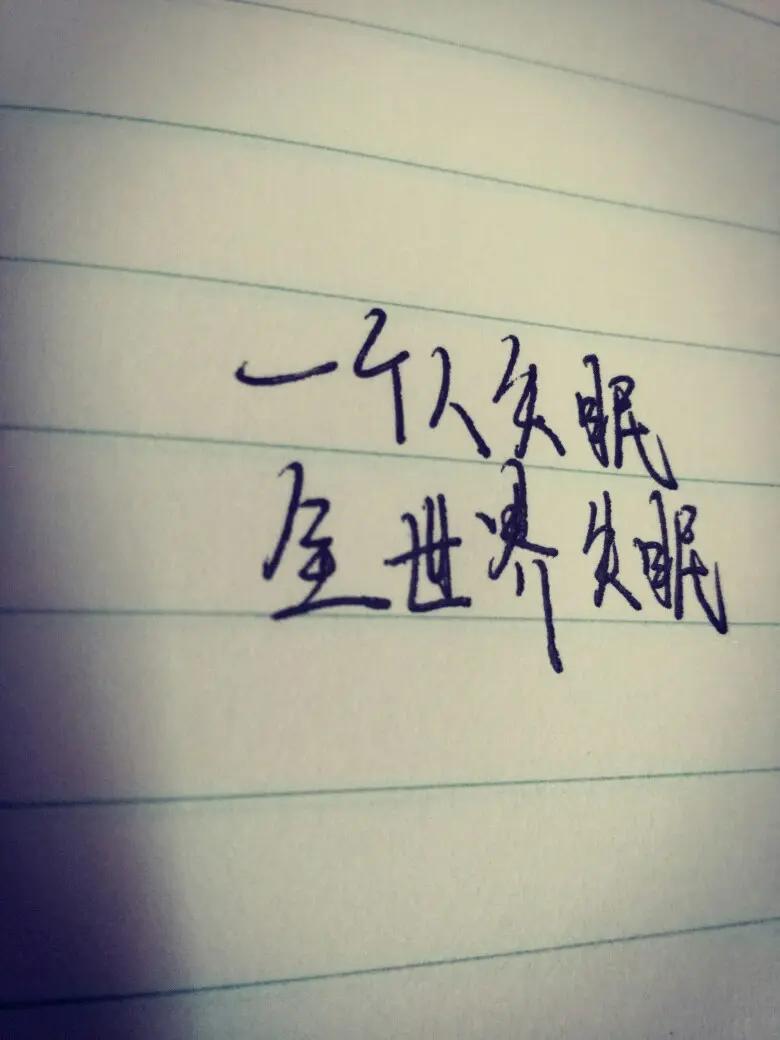 一个人失眠
全世界失眠